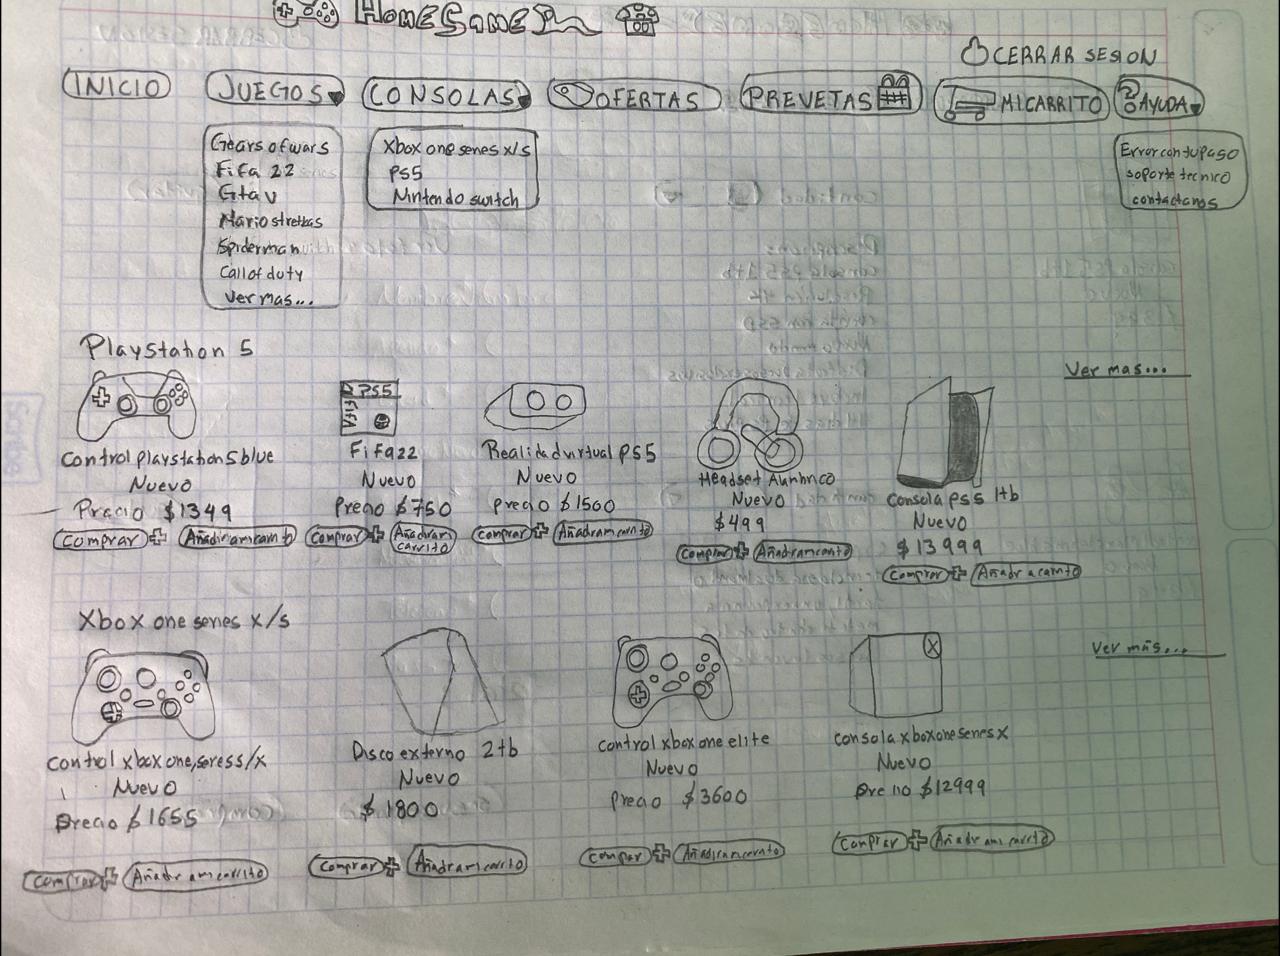 HOMEGAME
CERRAR SESION
INICIO JUEGOS CONSOLAS OFERTAS PREVETAS MI CARRITO AYUDA
Gears of wars
Fifa 22
Gta v
Mario
Spiderman
Call of duty
Ver mas...
Xbox one series x/s
PS5
Nintendo switch
Error con tu paso
soporte tecnico
contactanos
Playstation 5
Ver mas...
PS5
FIFA
Control playstation 5 blue
Nuevo
Precio $1349
Comprar + Añadir a mi carrito
Fifa 22
Nuevo
Precio $750
Comprar + Añadir a mi
carrito
Realidad virtual PS5
Nuevo
precio $1500
Comprar + Añadir a mi carrito
Headset
Nuevo
$499
Comprar + Añadir a mi carrito
Consola ps5 1tb
Nuevo
$13999
Comprar + Añadir a carrito
Xbox one series x/s
Ver más...
X
control xbox one, series s/x
Nuevo
Precio $1655
Comprar + Añadir a mi carrito
Disco externo 2tb
Nuevo
$1800
Comprar + Añadir a mi carrito
control xbox one elite
Nuevo
Precio $3600
Comprar + Añadir a mi carrito
consola xbox one series x
Nuevo
$12999
Comprar + Añadir a mi carrito